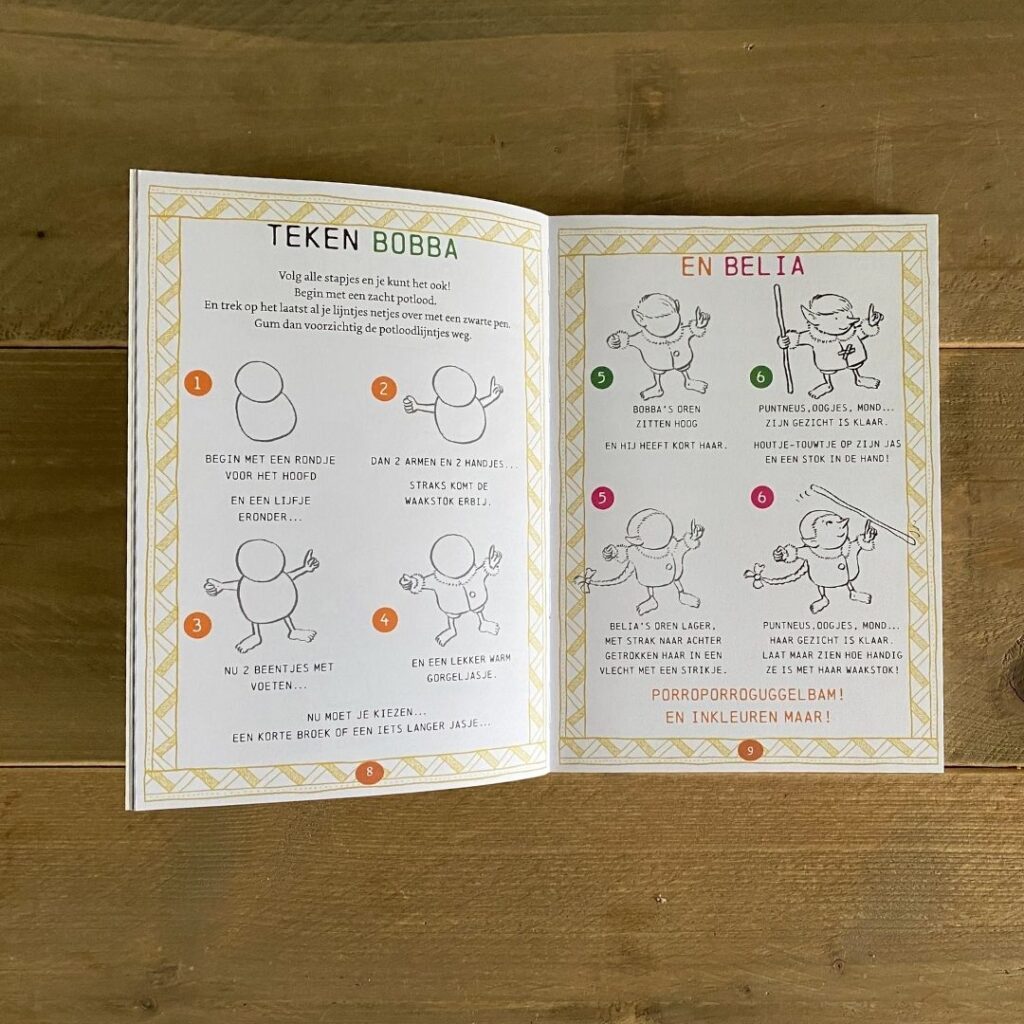 TEKEN BOBBA
Volg alle stapjes en je kunt het ook!
Begin met een zacht potlood.
En trek op het laatst al je lijntjes netjes over met een zwarte pen.
Gum dan voorzichtig de potloodlijntjes weg.
1
BEGIN MET EEN RONDJE
VOOR HET HOOFD
EN EEN LIJFJE
ERONDER...
2
DAN 2 ARMEN EN 2 HANDJES...
STRAKS KOMT DE
WAAKSTOK ERBIJ.
3
NU 2 BEENTJES MET
VOETEN...
4
EN EEN LEKKER WARM
GORGELJASJE.
NU MOET JE KIEZEN...
EEN KORTE BROEK OF EEN IETS LANGER JASJE...
8
EN BELIA
5
BOBBA'S OREN
ZITTEN HOOG
EN HIJ HEEFT KORT HAAR.
6
PUNTNEUS,OOGJES, MOND...
ZIJN GEZICHT IS KLAAR.
HOUTJE-TOUWTJE OP ZIJN JAS
EN EEN STOK IN DE HAND!
5
BELIA'S OREN LAGER,
MET STRAK NAAR ACHTER
GETROKKEN HAAR IN EEN
VLECHT MET EEN STRIKJE.
6
PUNTNEUS,OOGJES, MOND...
HAAR GEZICHT IS KLAAR.
LAAT MAAR ZIEN HOE HANDIG
ZE IS MET HAAR WAAKSTOK!
PORROPORROGUGGELBAM!
EN INKLEUREN MAAR!
9